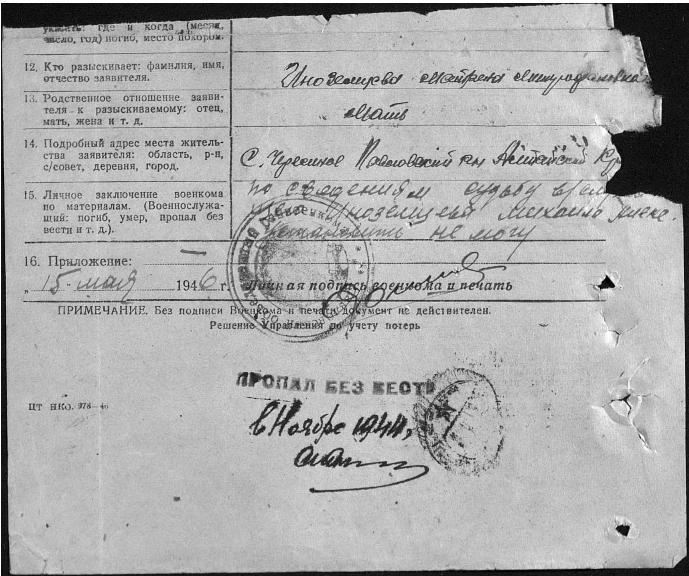 указать: где и когда (месяц,
число, год) погиб, место похорон.
12. Кто разыскивает: фамилия, имя,
отчество заявителя.
Иноземцева Матрена Митрофановна
13. Родственное отношение заяви-
теля к разыскиваемому: отец,
мать, жена и т. д.
Мать
14. Подробный адрес места житель-
ства заявителя: область, р-н,
с/совет, деревня, город.
С. Павловский Алтайский
15. Личное заключение военкома
по материалам. (Военнослужа-
щий: погиб, умер, пропал без
вести и т. д.).
по сведениям судьбу
михаила
установить не могу
16. Приложение: —
„ 15 мая 1946 г. Личная подпись военкома и печать
ПРИМЕЧАНИЕ. Без подписи Военкома и печати документ не действителен.
Решение Управления по учету потерь
ПРОПАЛ БЕЗ ВЕСТИ
ЦТ НКО. 978—46
в Ноябре 1944г.